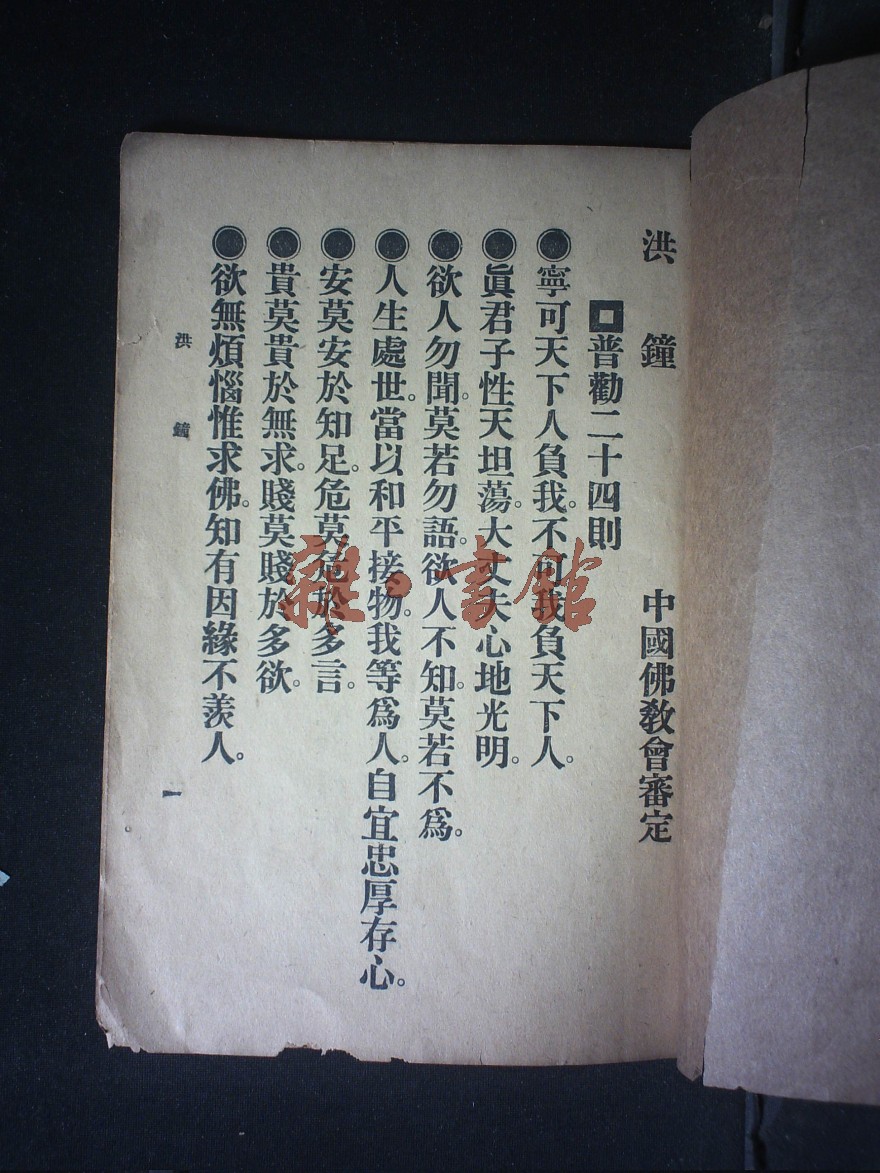 洪鐘　中國佛敎會審定
普勸二十四則
寧可天下人負我。不可我負天下人。
眞君子性天坦蕩。大丈夫心地光明。
欲人勿聞。莫若勿語。欲人不知。莫若不爲。
人生處世。當以和平接物。我等爲人。自宜忠厚存心。
安莫安於知足。危莫危於多言。
貴莫貴於無求。賤莫賤於多欲。
欲無煩惱惟求佛。知有因緣不羨人。
洪鐘
一
雜·書館